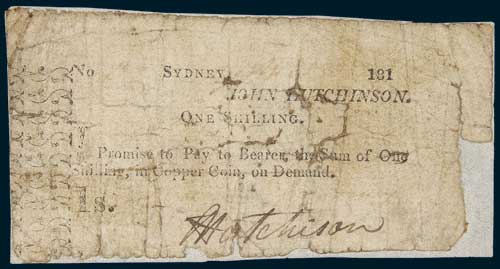 No SYDNEY, 181
JOHN HUTCHINSON.
ONE SHILLING.
I Promise to Pay to Bearer, the Sum of One
Shilling, in Copper Coin, on Demand.
1s.
Hutchison